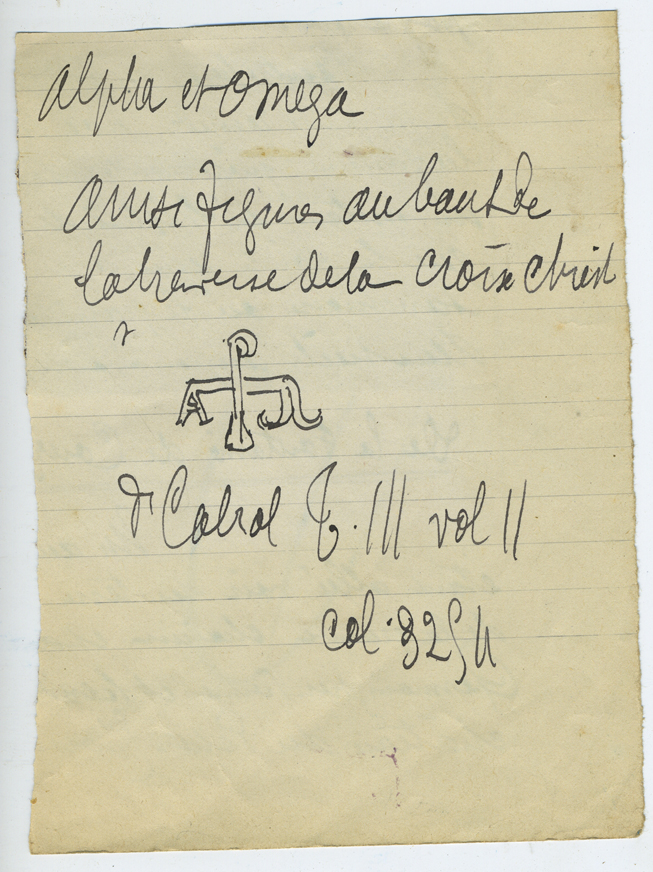 Alpha et Omega
ainsi figurés au bout de
la traverse de la croix Christ
A Ω
Dr Cabrol T. III vol II
col. 3254